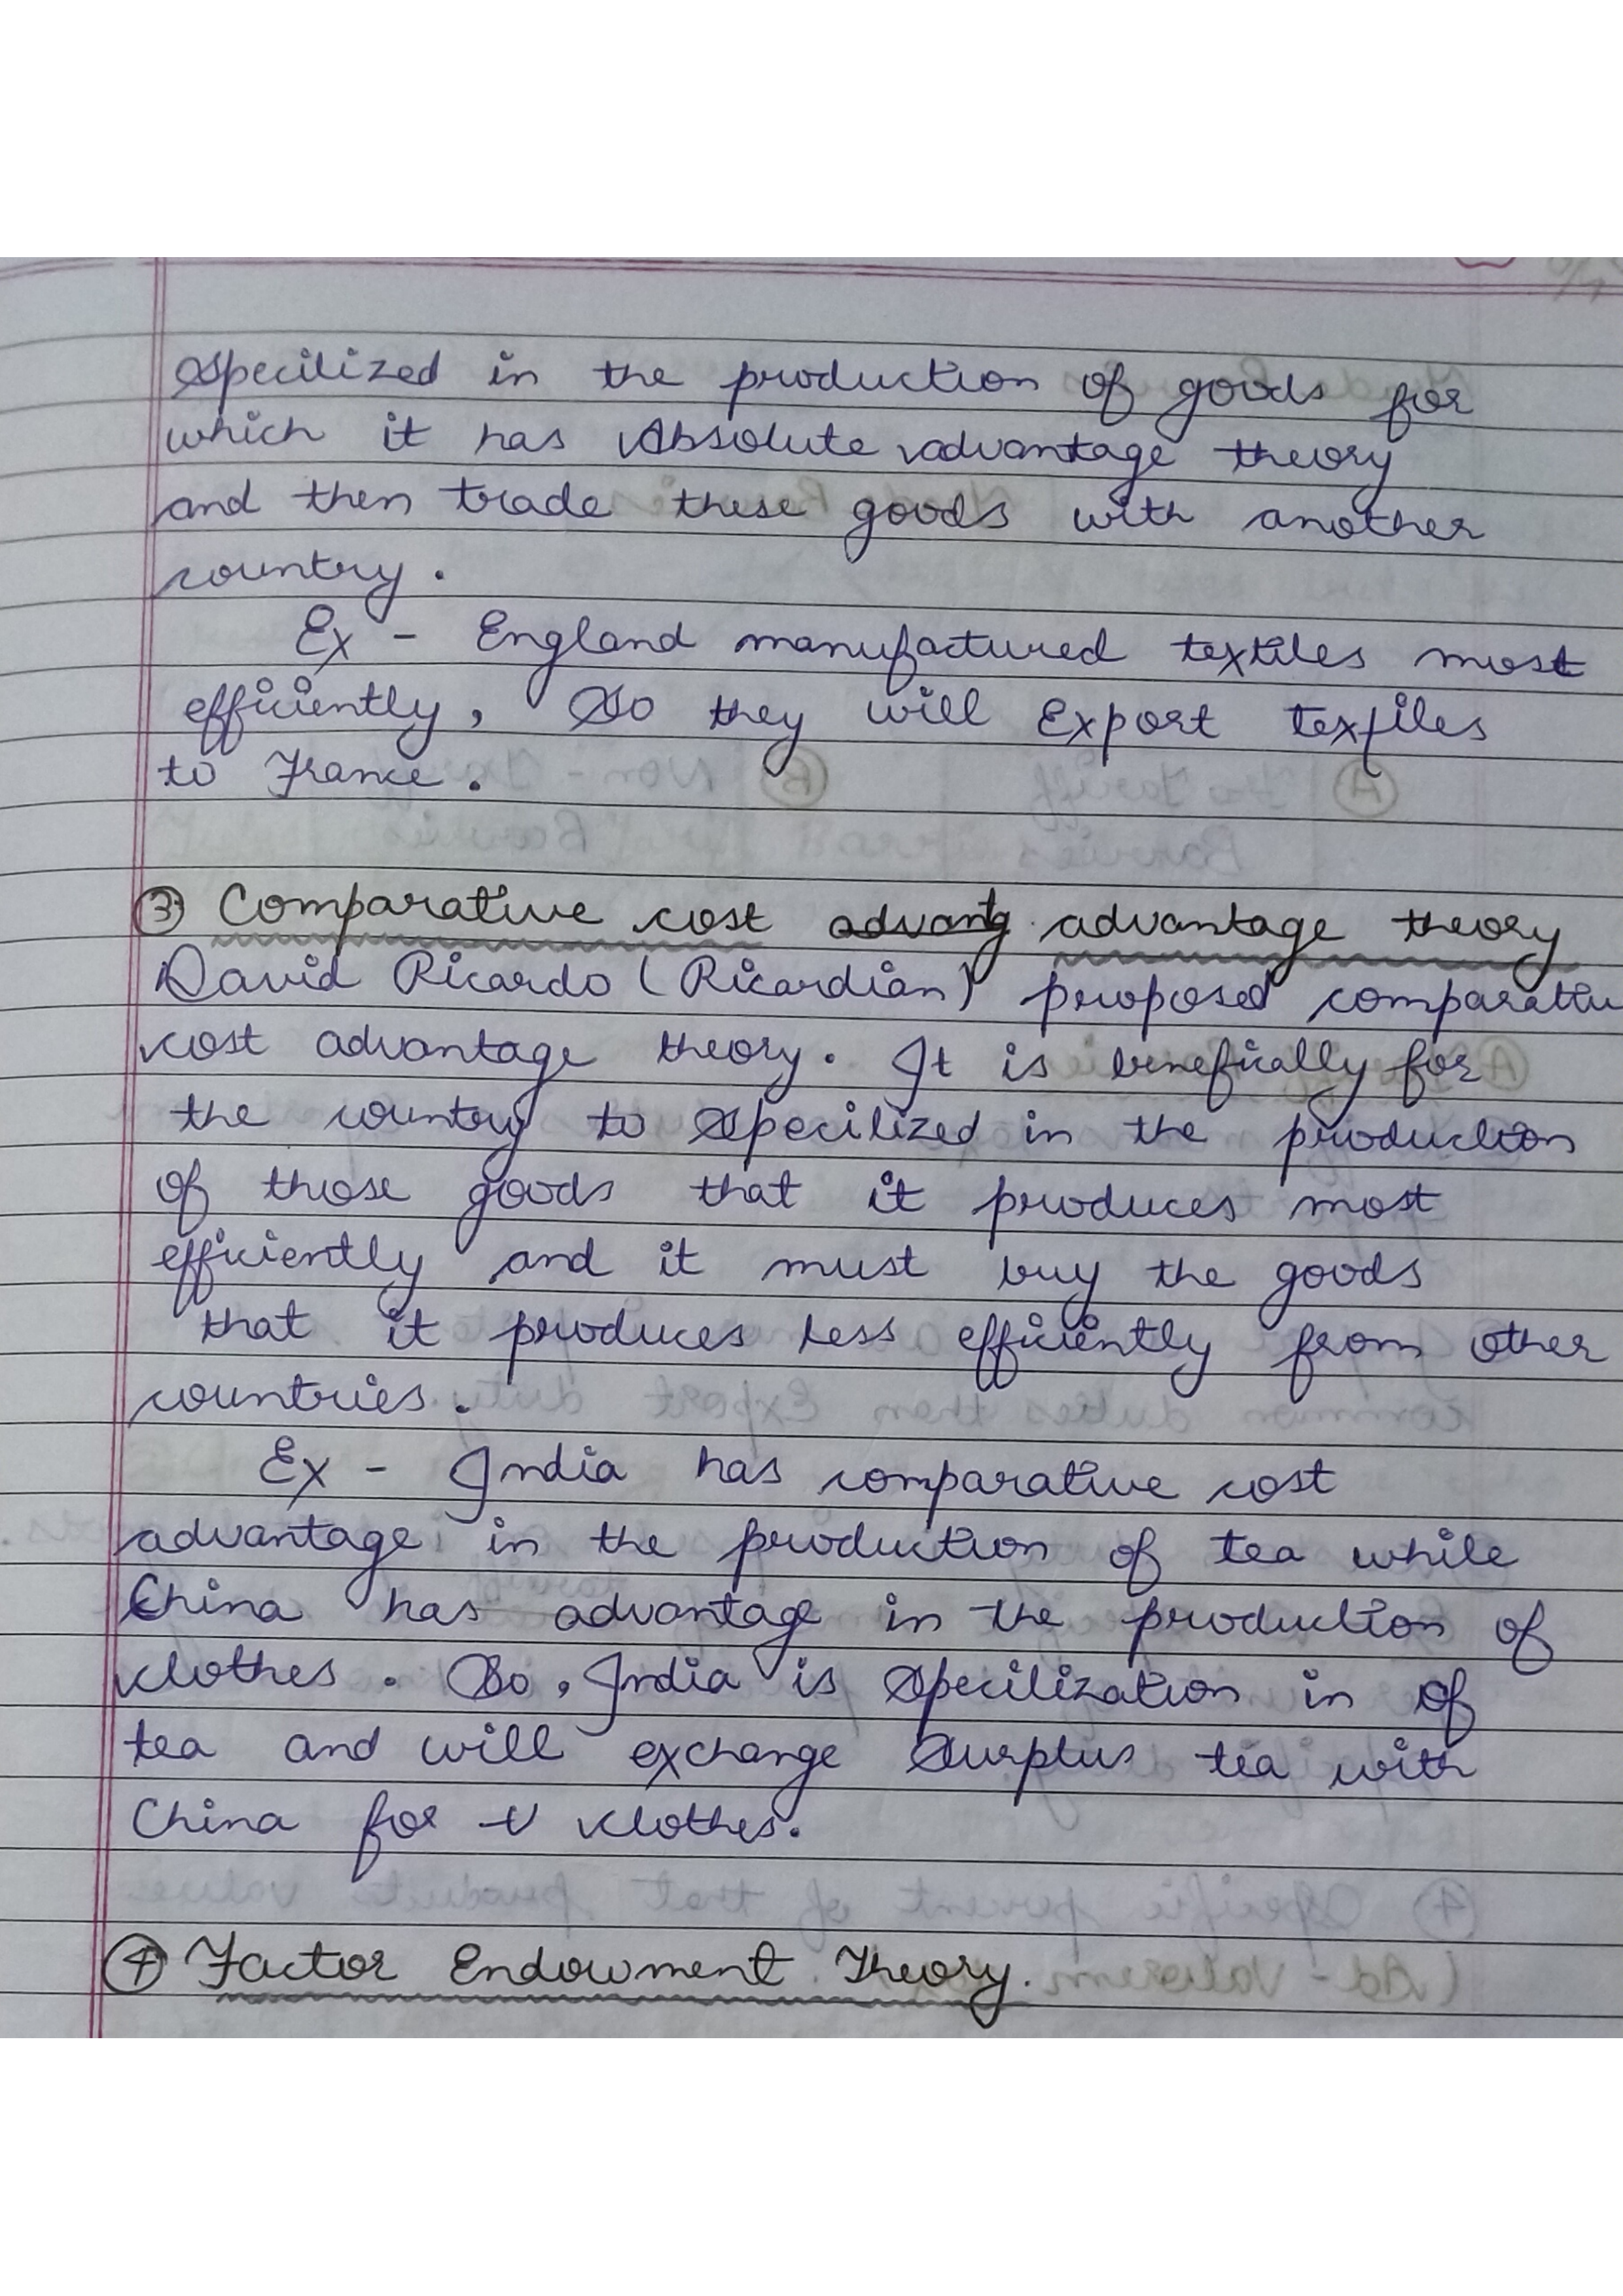 specilized in the production of goods for
which it has Absolute advantage theory
and then trade these goods with another
country.
Ex - England manufactured textiles most
efficiently, So they will Export textiles
to France.
③ Comparative cost advantg advantage theory
David Ricardo (Ricardian) proposed comparative
cost advantage theory. It is benefically for
the country to specilized in the production
of those goods that it produces most
efficiently and it must buy the goods
that it produces less efficiently from other
countries.
Ex - India has comparative cost
advantage in the production of tea while
China has advantage in the production of
clothes. So, India is specilization in of
tea and will exchange surplus tea with
China for clothes.
④ Factor Endowment Theory.